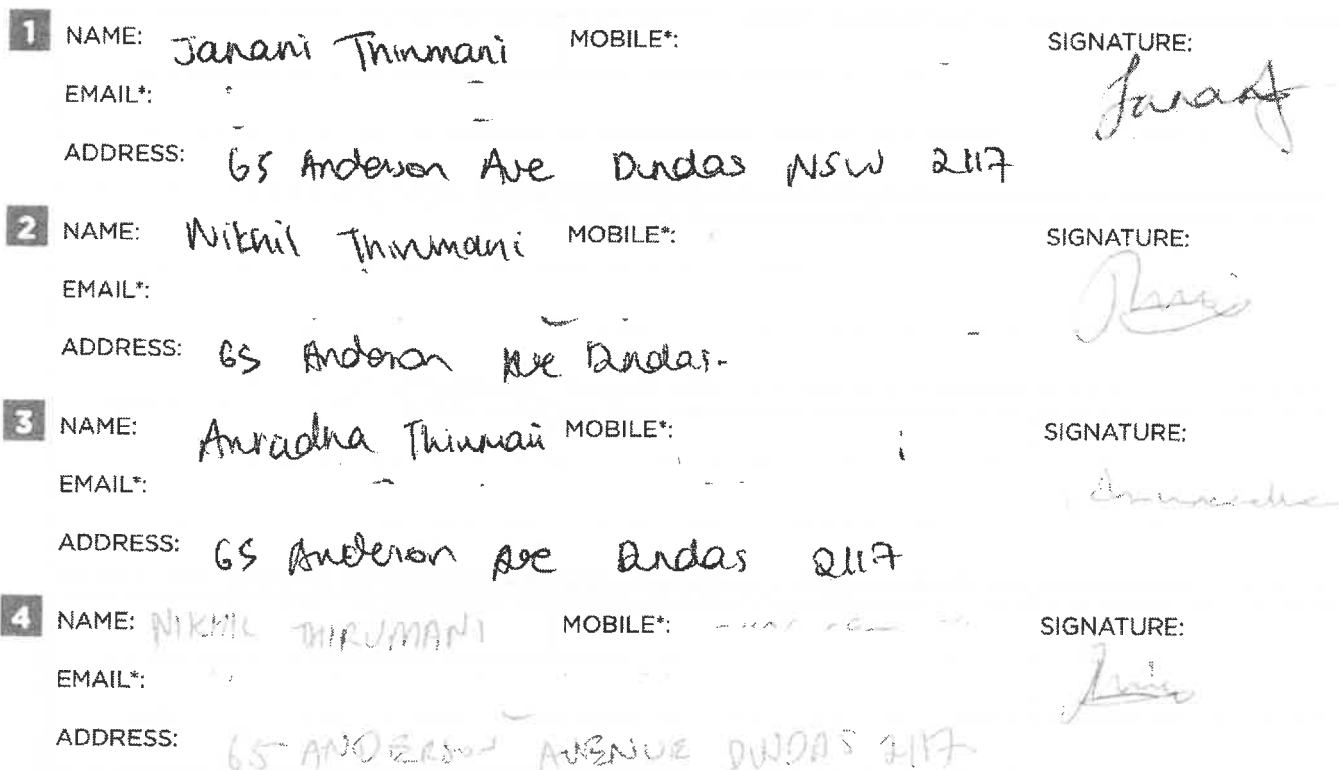 1 NAME: Janani Thirumani MOBILE*: SIGNATURE:
EMAIL*:
ADDRESS: 65 Anderson Ave Dundas NSW 2117
2 NAME: Nikhil Thirumani MOBILE*: SIGNATURE:
EMAIL*:
ADDRESS: 65 Anderson Ave Dundas.
3 NAME: Anuradha Thirumani MOBILE*: SIGNATURE:
EMAIL*:
ADDRESS: 65 Anderson Ave Dundas 2117
4 NAME: NIKHIL THIRUMANI MOBILE*: SIGNATURE:
EMAIL*:
ADDRESS: 65 ANDERSON AVENUE DUNDAS 2117